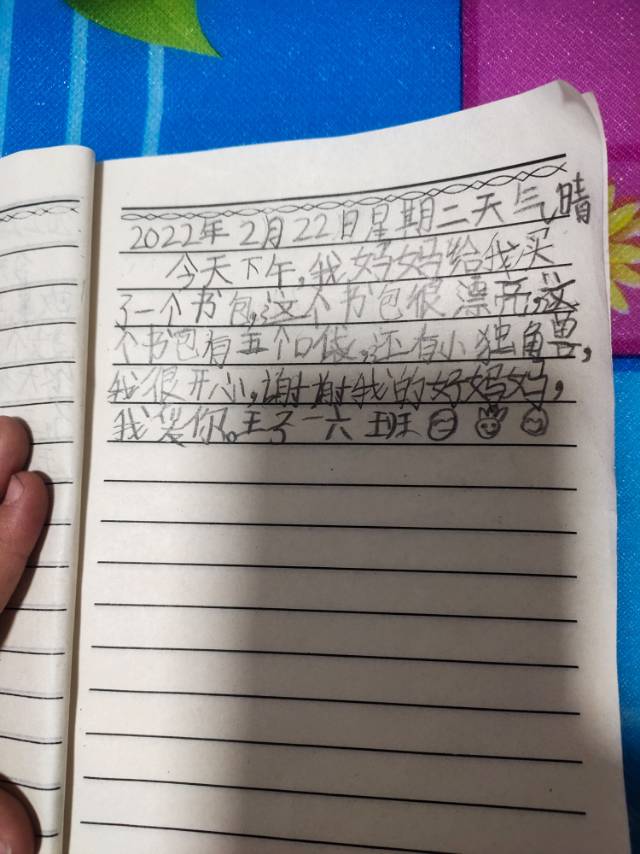 2022年2月22日星期二天气晴
今天下午,我妈妈给我买
了一个书包,这个书包很漂亮,这
个书包有五个口袋,还有小独角兽,
我很开心,谢谢我的好妈妈,
我爱你。王子一六班